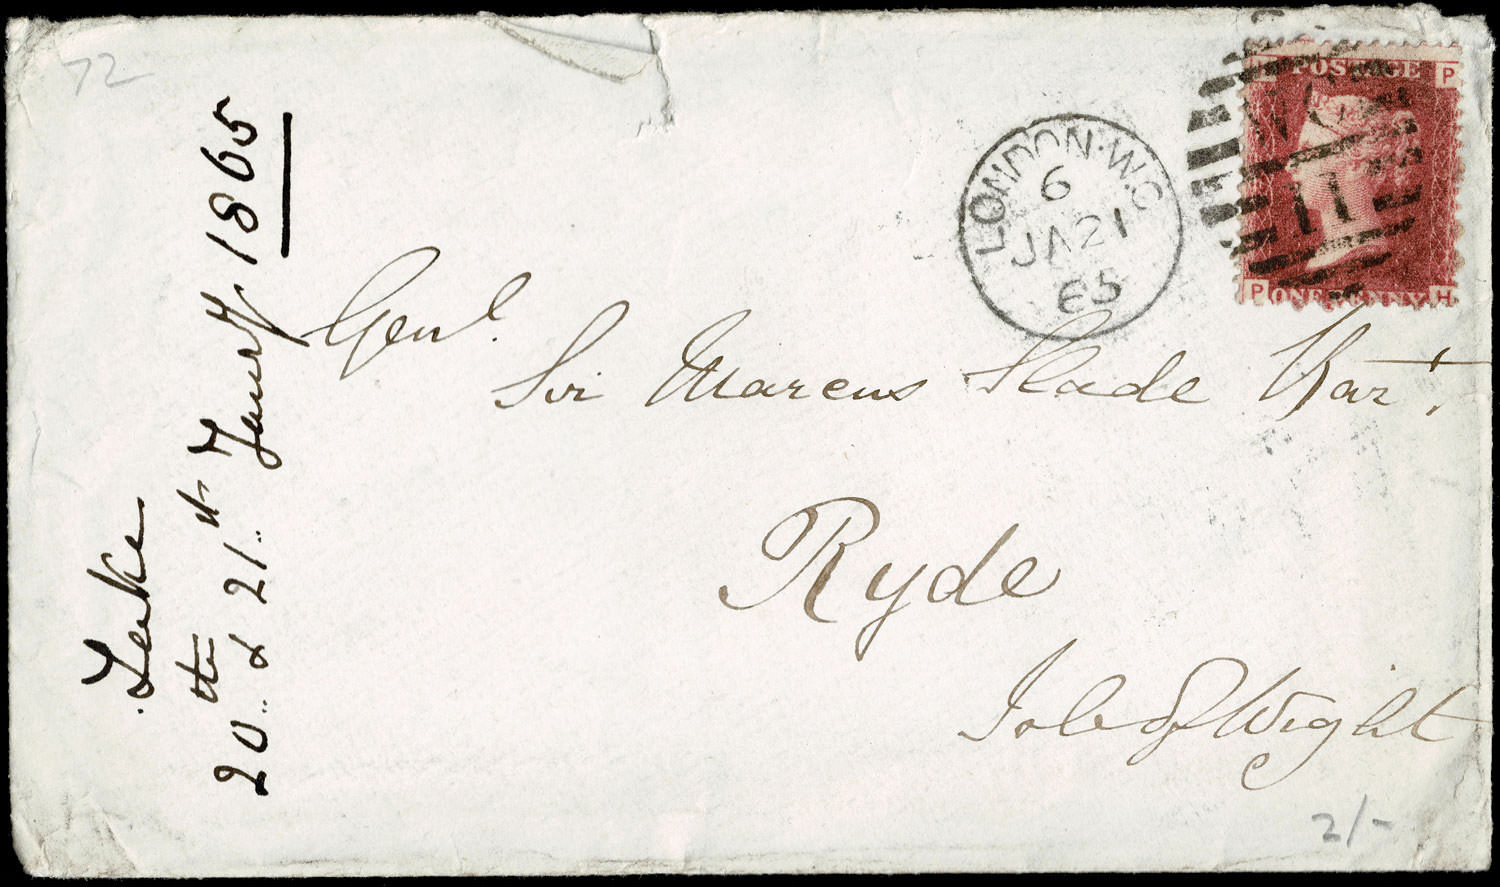 72
Leake
20th & 21st Jany 1865
LONDON·W.C
6
JA 21
65
WC
11
POSTAGE
P
P
ONE PENNY
H
Genl.
Sir Marcus Slade Bart.
Ryde
Isle of Wight
2/-